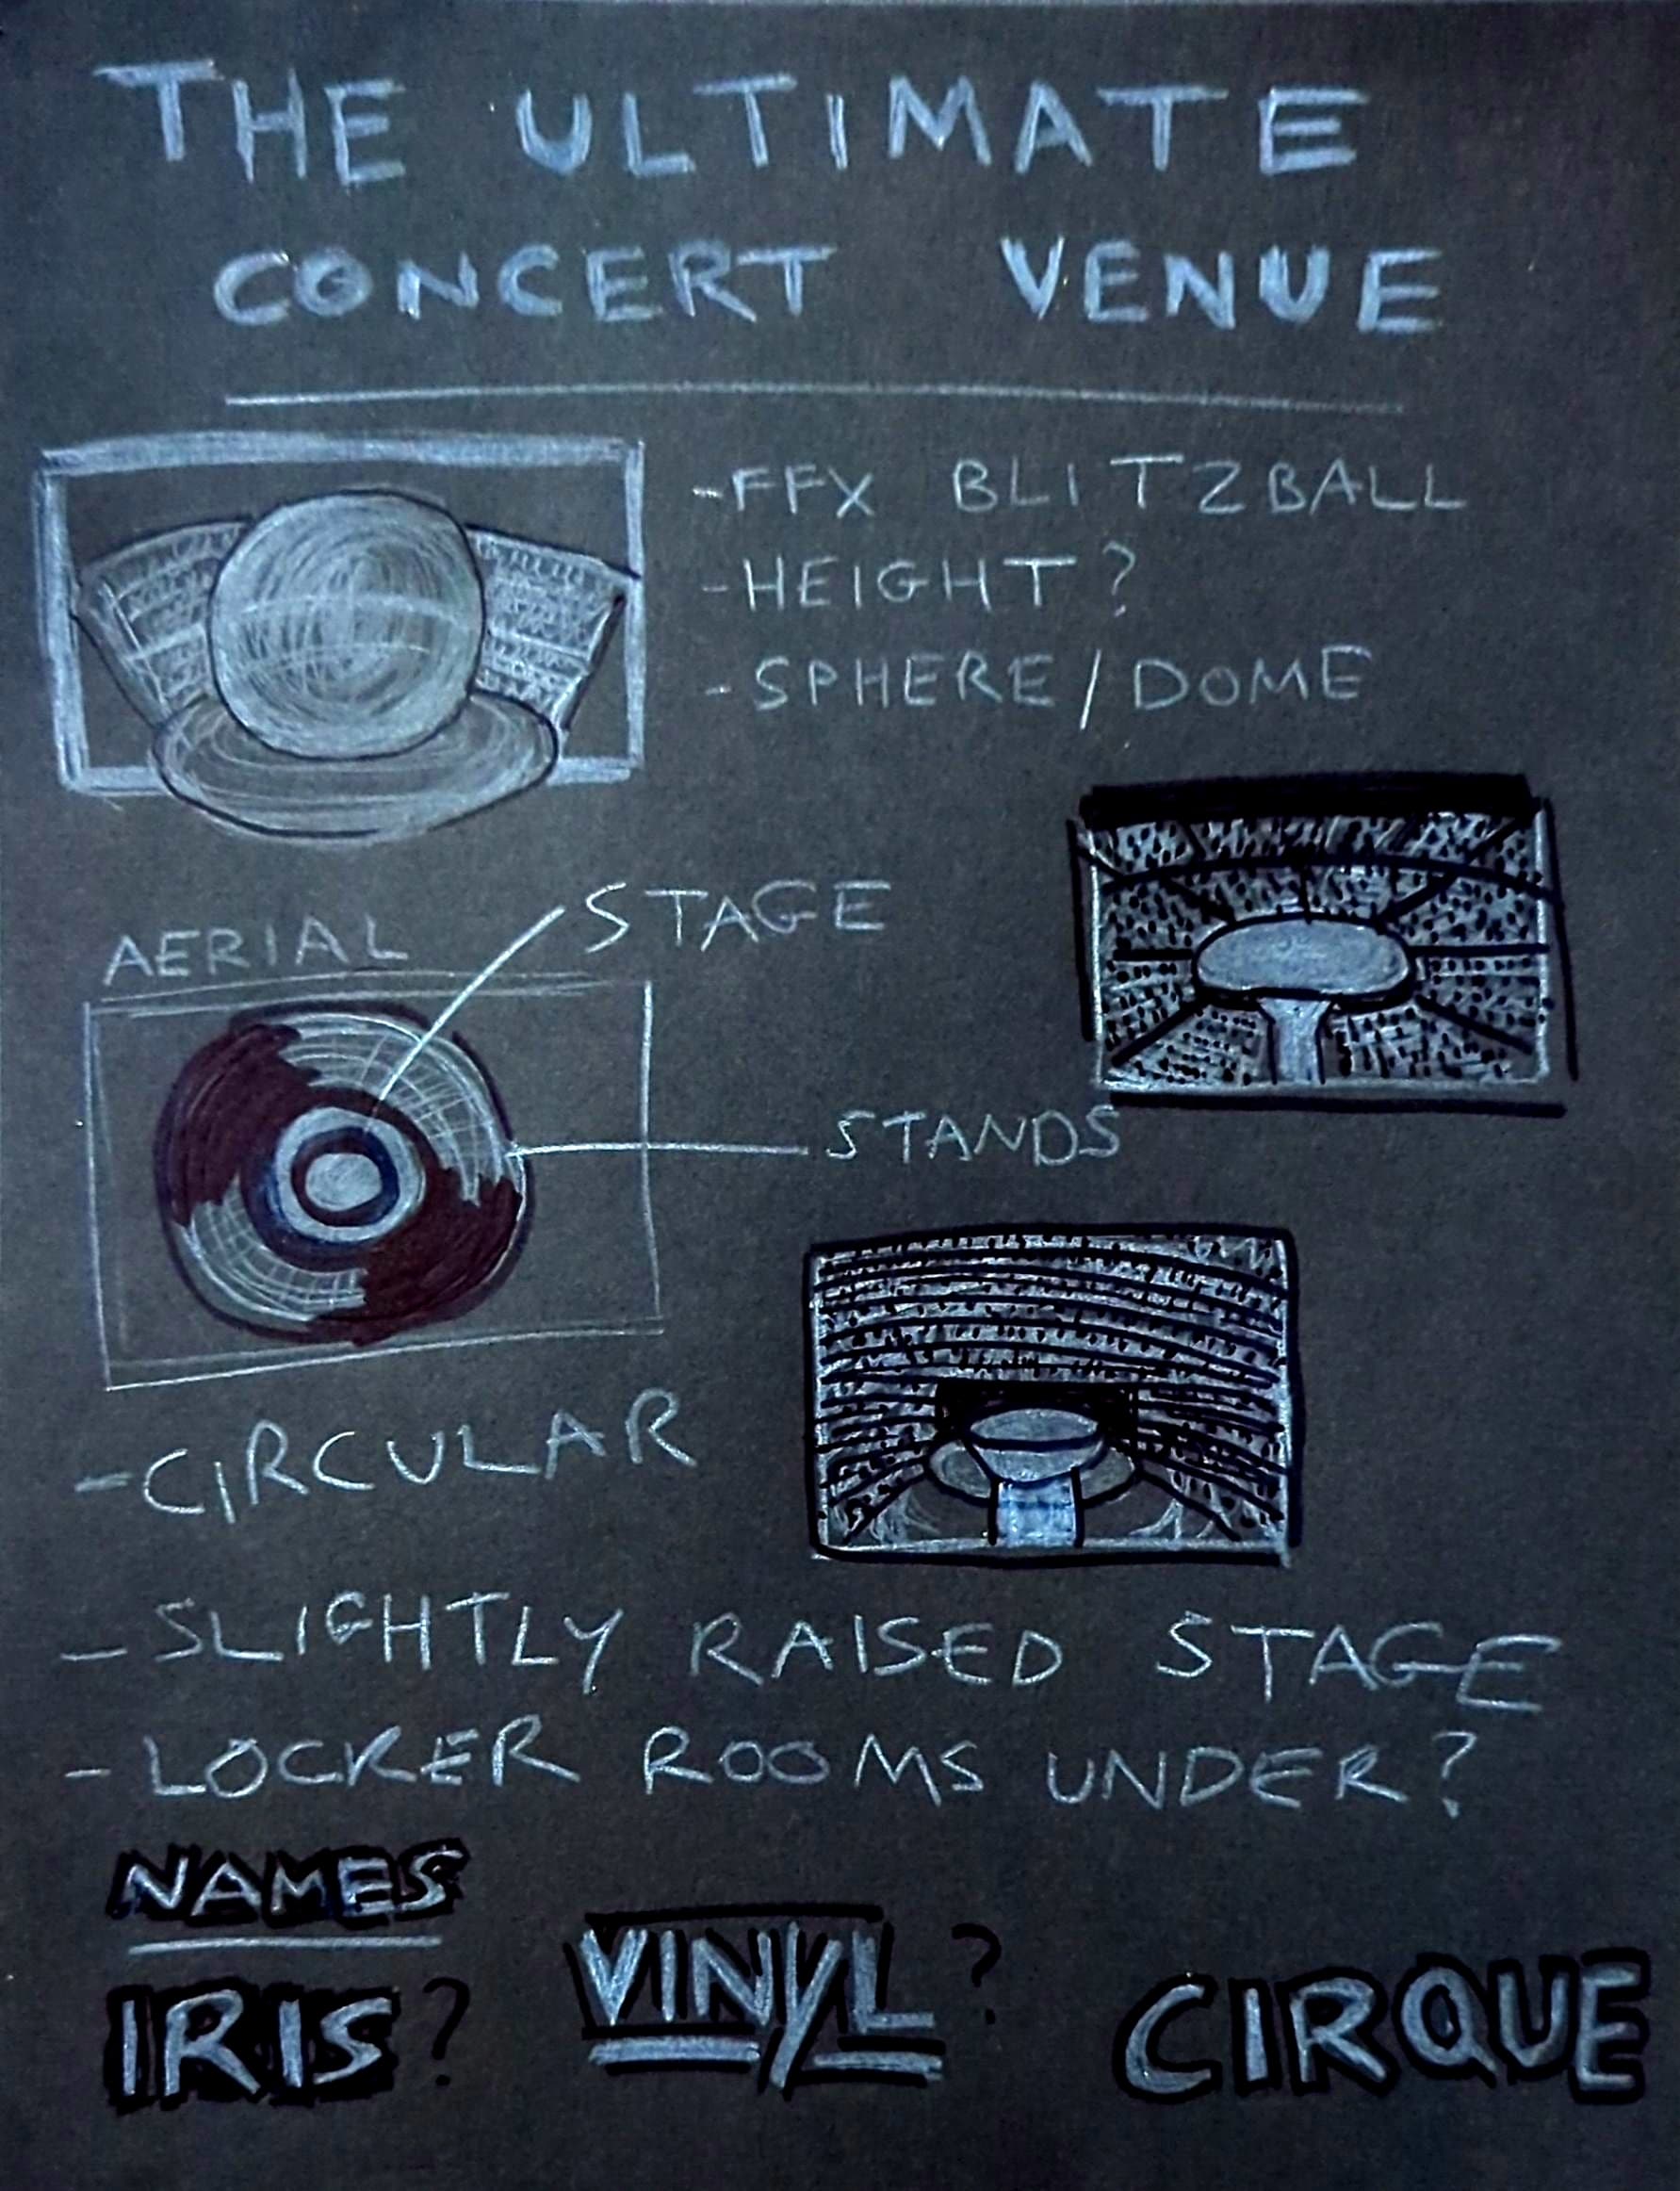 THE ULTIMATE
CONCERT VENUE
-FFX BLITZBALL
-HEIGHT?
-SPHERE/DOME
AERIAL
STAGE
STANDS
-CIRCULAR
-SLIGHTLY RAISED STAGE
-LOCKER ROOMS UNDER?
NAMES
IRIS? VINYL? CIRQUE